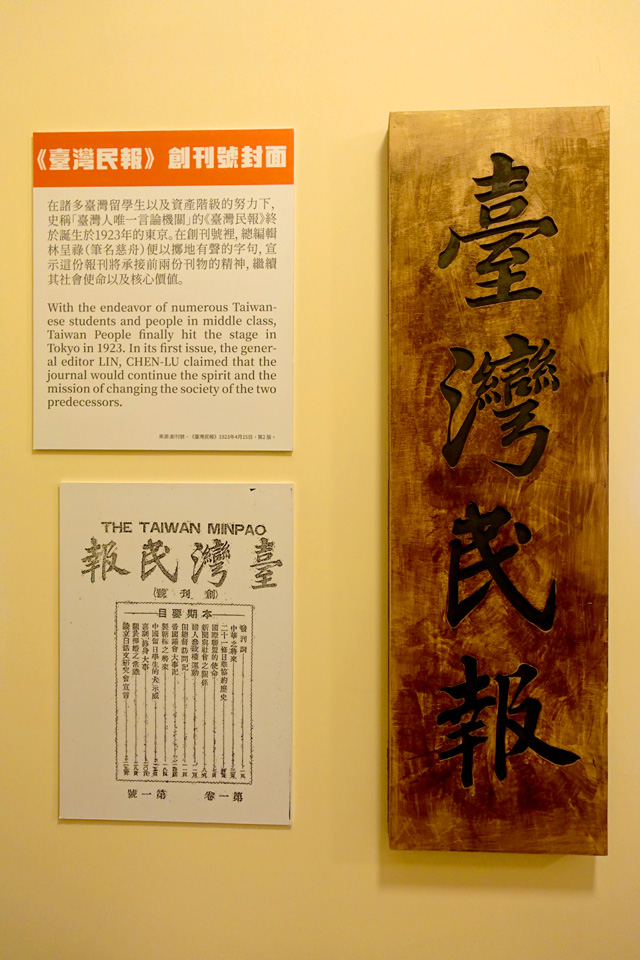 《臺灣民報》 創刊號封面
在諸多臺灣留學生以及資產階級的努力下，
史稱「臺灣人唯一言論機關」的《臺灣民報》終
於誕生於1923年的東京。在創刊號裡，總編輯
林呈祿（筆名慈舟）便以擲地有聲的字句，宣
示這份報刊將承接前兩份刊物的精神，繼續
其社會使命以及核心價值。
With the endeavor of numerous Taiwan-
ese students and people in middle class,
Taiwan People finally hit the stage in
Tokyo in 1923. In its first issue, the gener-
al editor LIN, CHEN-LU claimed that the
journal would continue the spirit and the
mission of changing the society of the two
predecessors.
來源:創刊號，《臺灣民報》1923年4月15日，第2版。
THE TAIWAN MINPAO
臺灣民報
(創刊號)
本期要目
發刊詞
中華之將來
二十一條日華協約歷史
國際聯盟的使命
新聞與社會之關係
婦人參政權運動
田總督訪問記
帝國議會大事記
製糖業之將來
中國留日學生的大示威
第一卷 第一號
臺灣民報